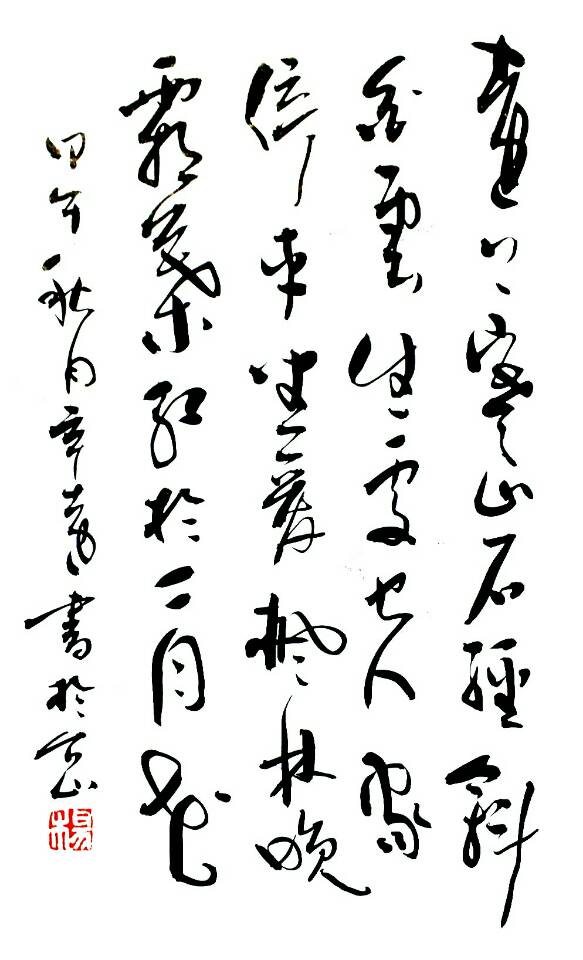 遠上寒山石經斜
白雲生處有人家
停車坐愛楓林晚
霜葉紅於二月花
甲午秋月遠書於山
楊